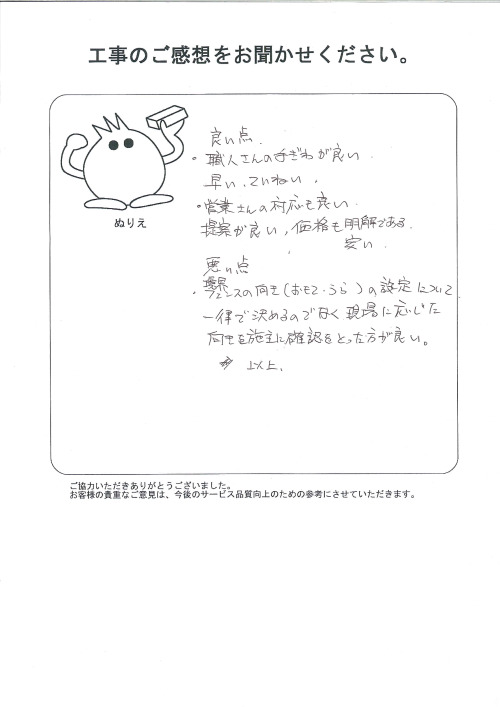 工事のご感想をお聞かせください。
ぬりえ
良い点.
・職人さんの手ぎわが良い.
早い、ていねい.
・営業さんの対応も良い.
提案が良い, 価格も明解である.
安い.
悪い点
・境界
フェンスの向き(おもて・うら)の設定について
一律で決めるのでなく現場に応じた
向きを施主に確認をとった方が良い。
以上.
ご協力いただきありがとうございました。
お客様の貴重なご意見は、今後のサービス品質向上のための参考にさせていただきます。